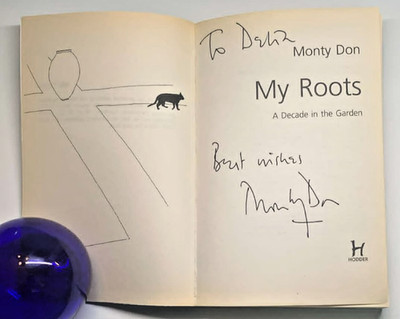 To Delia
Monty Don
My Roots
A Decade in the Garden
Best wishes
Monty Don
H
HODDER